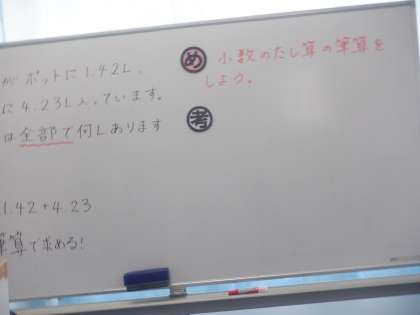 が ポットに 1.42L、
に 4.23L入っています。
は全部で何Lあります
1.42+4.23
筆算で求める!
め 小数のたし算の筆算を
しよう。
考